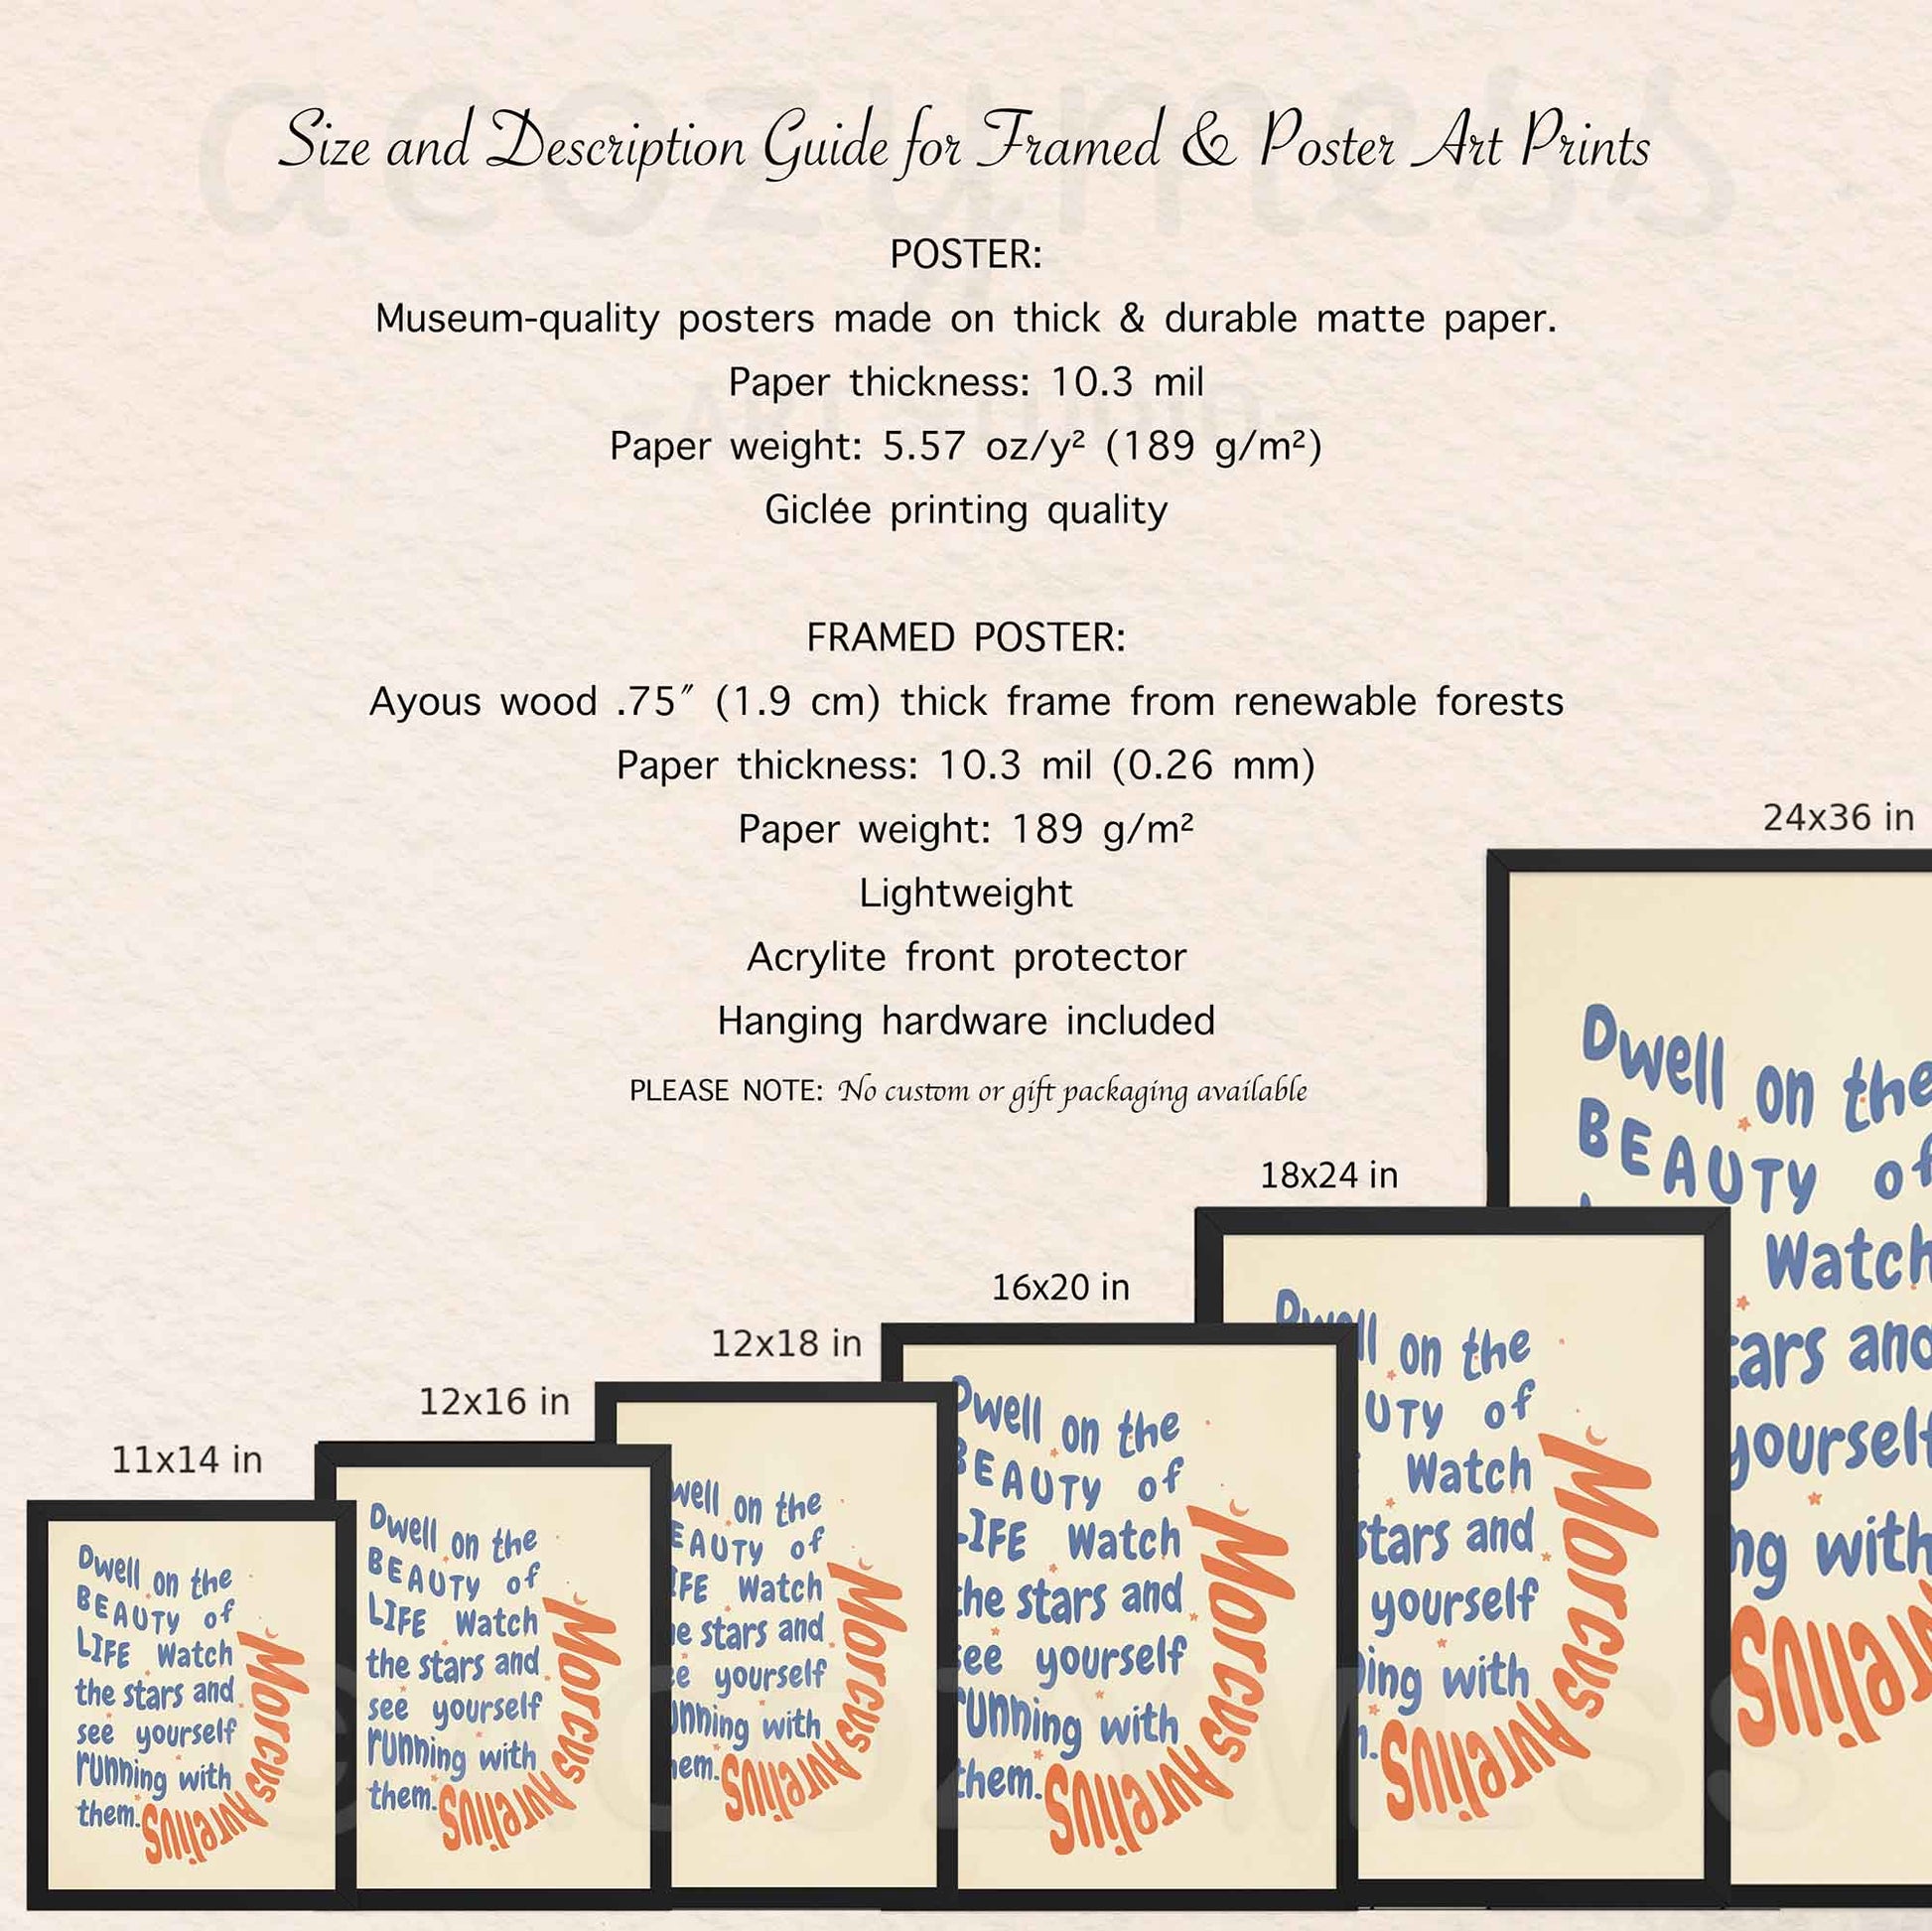 acozymess
Size and Description Guide for Framed & Poster Art Prints
POSTER:
Museum-quality posters made on thick & durable matte paper.
Paper thickness: 10.3 mil
-ART STUDIO-
Paper weight: 5.57 oz/y² (189 g/m²)
Giclée printing quality
FRAMED POSTER:
Ayous wood .75″ (1.9 cm) thick frame from renewable forests
Paper thickness: 10.3 mil (0.26 mm)
Paper weight: 189 g/m²
Lightweight
Acrylite front protector
Hanging hardware included
PLEASE NOTE: No custom or gift packaging available
11x14 in
Dwell on the
BEAUTY of
LIFE Watch
the stars and
see yourself
running with
them.
Marcus Aurelius
12x16 in
Dwell on the
BEAUTY of
LIFE Watch
the stars and
see yourself
running with
them.
Marcus Aurelius
12x18 in
well on the
EAUTY of
IFE Watch
e stars and
ee yourself
unning with
hem.
Marcus Aurelius
16x20 in
Dwell on the
BEAUTY of
LIFE Watch
the stars and
see yourself
running with
them.
Marcus Aurelius
18x24 in
Dwell on the
UTY of
Watch
stars and
yourself
ing with
Marcus Aurelius
24x36 in
Dwell on the
BEAUTY of
Watch
tars and
yourself
ng with
Aurelius
©ACOZYMESS